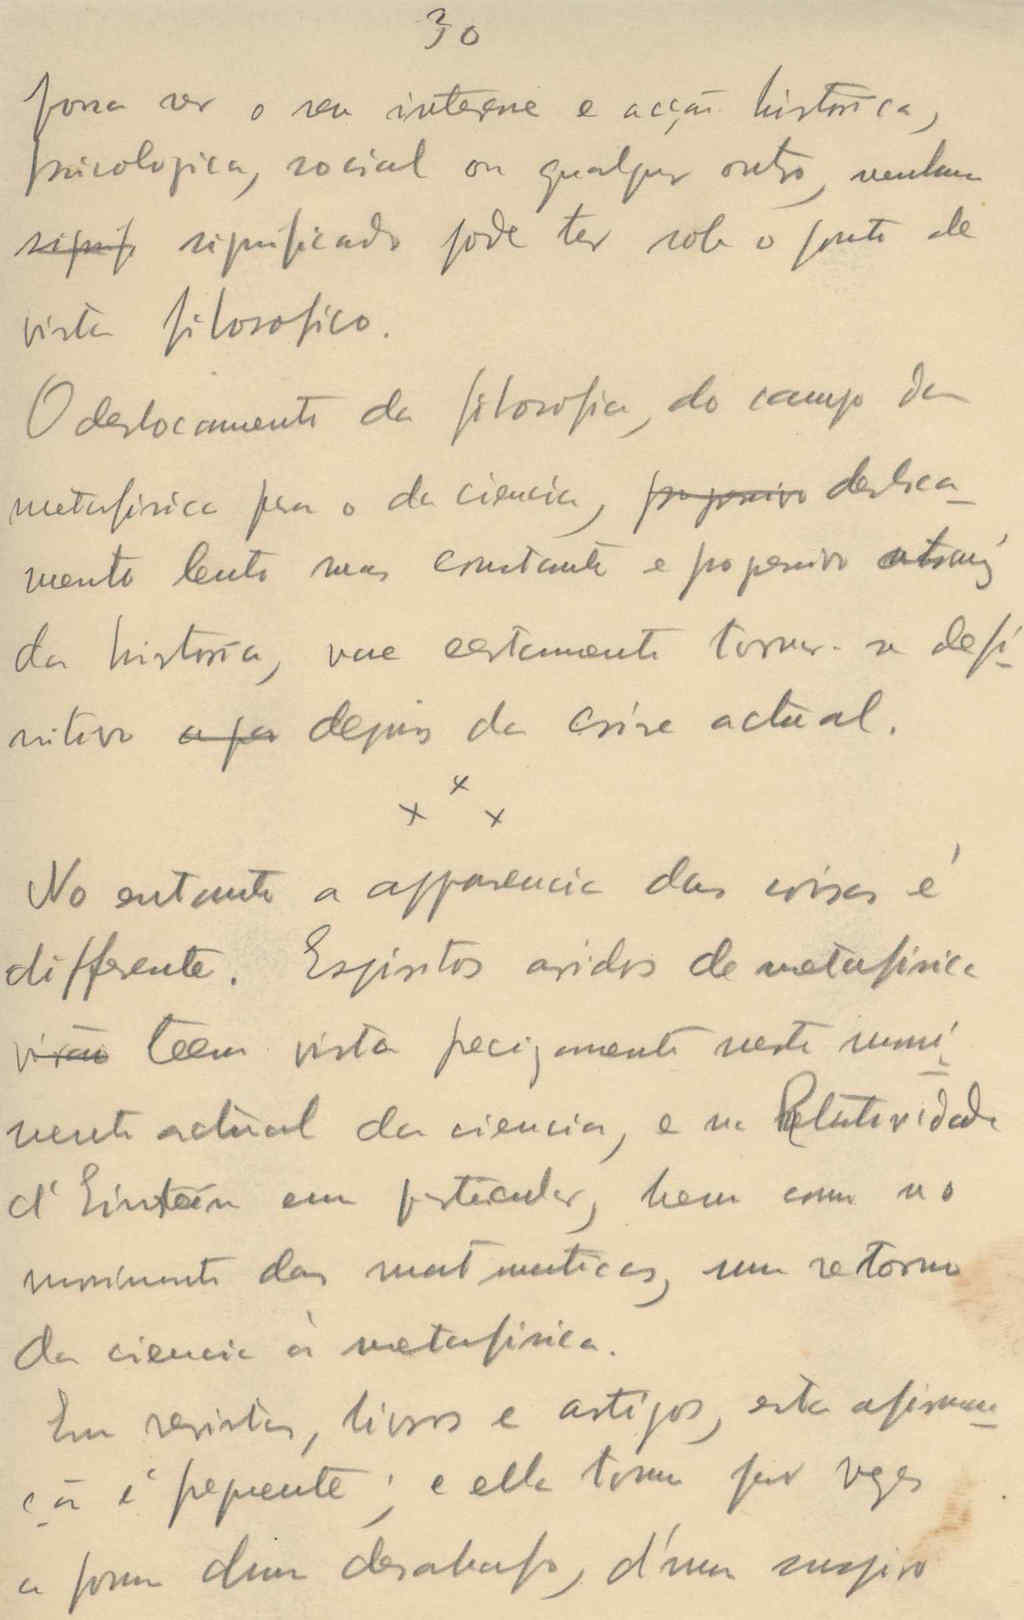 30
possa ser o seu interesse e acção historica,
psicologica, social ou qualquer outro, nenhum
signif. significado pode ter sob o ponto de
vista filosofico.
O deslocamento da filosofia, do campo da
metafisica para o da ciencia, progressivo desloca-
mento lento mas constante e progressivo atravéz
da historia, vae certamente tornar-se defi-
nitivo depois da crise actual.
x x x
No entanto a apparencia das coisas é
differente. Espiritos avidos de metafisica
visão teem visto precizamente neste movi-
mento actual da ciencia, e na Relatividade
d'Einstein em particular, bem como no
movimento das matematicas, um retorno
da ciencia á metafisica.
Em revistas, livros e artigos, esta afirma-
ção é frequente; e ella toma por vezes
a forma dum desabafo, d'um suspiro